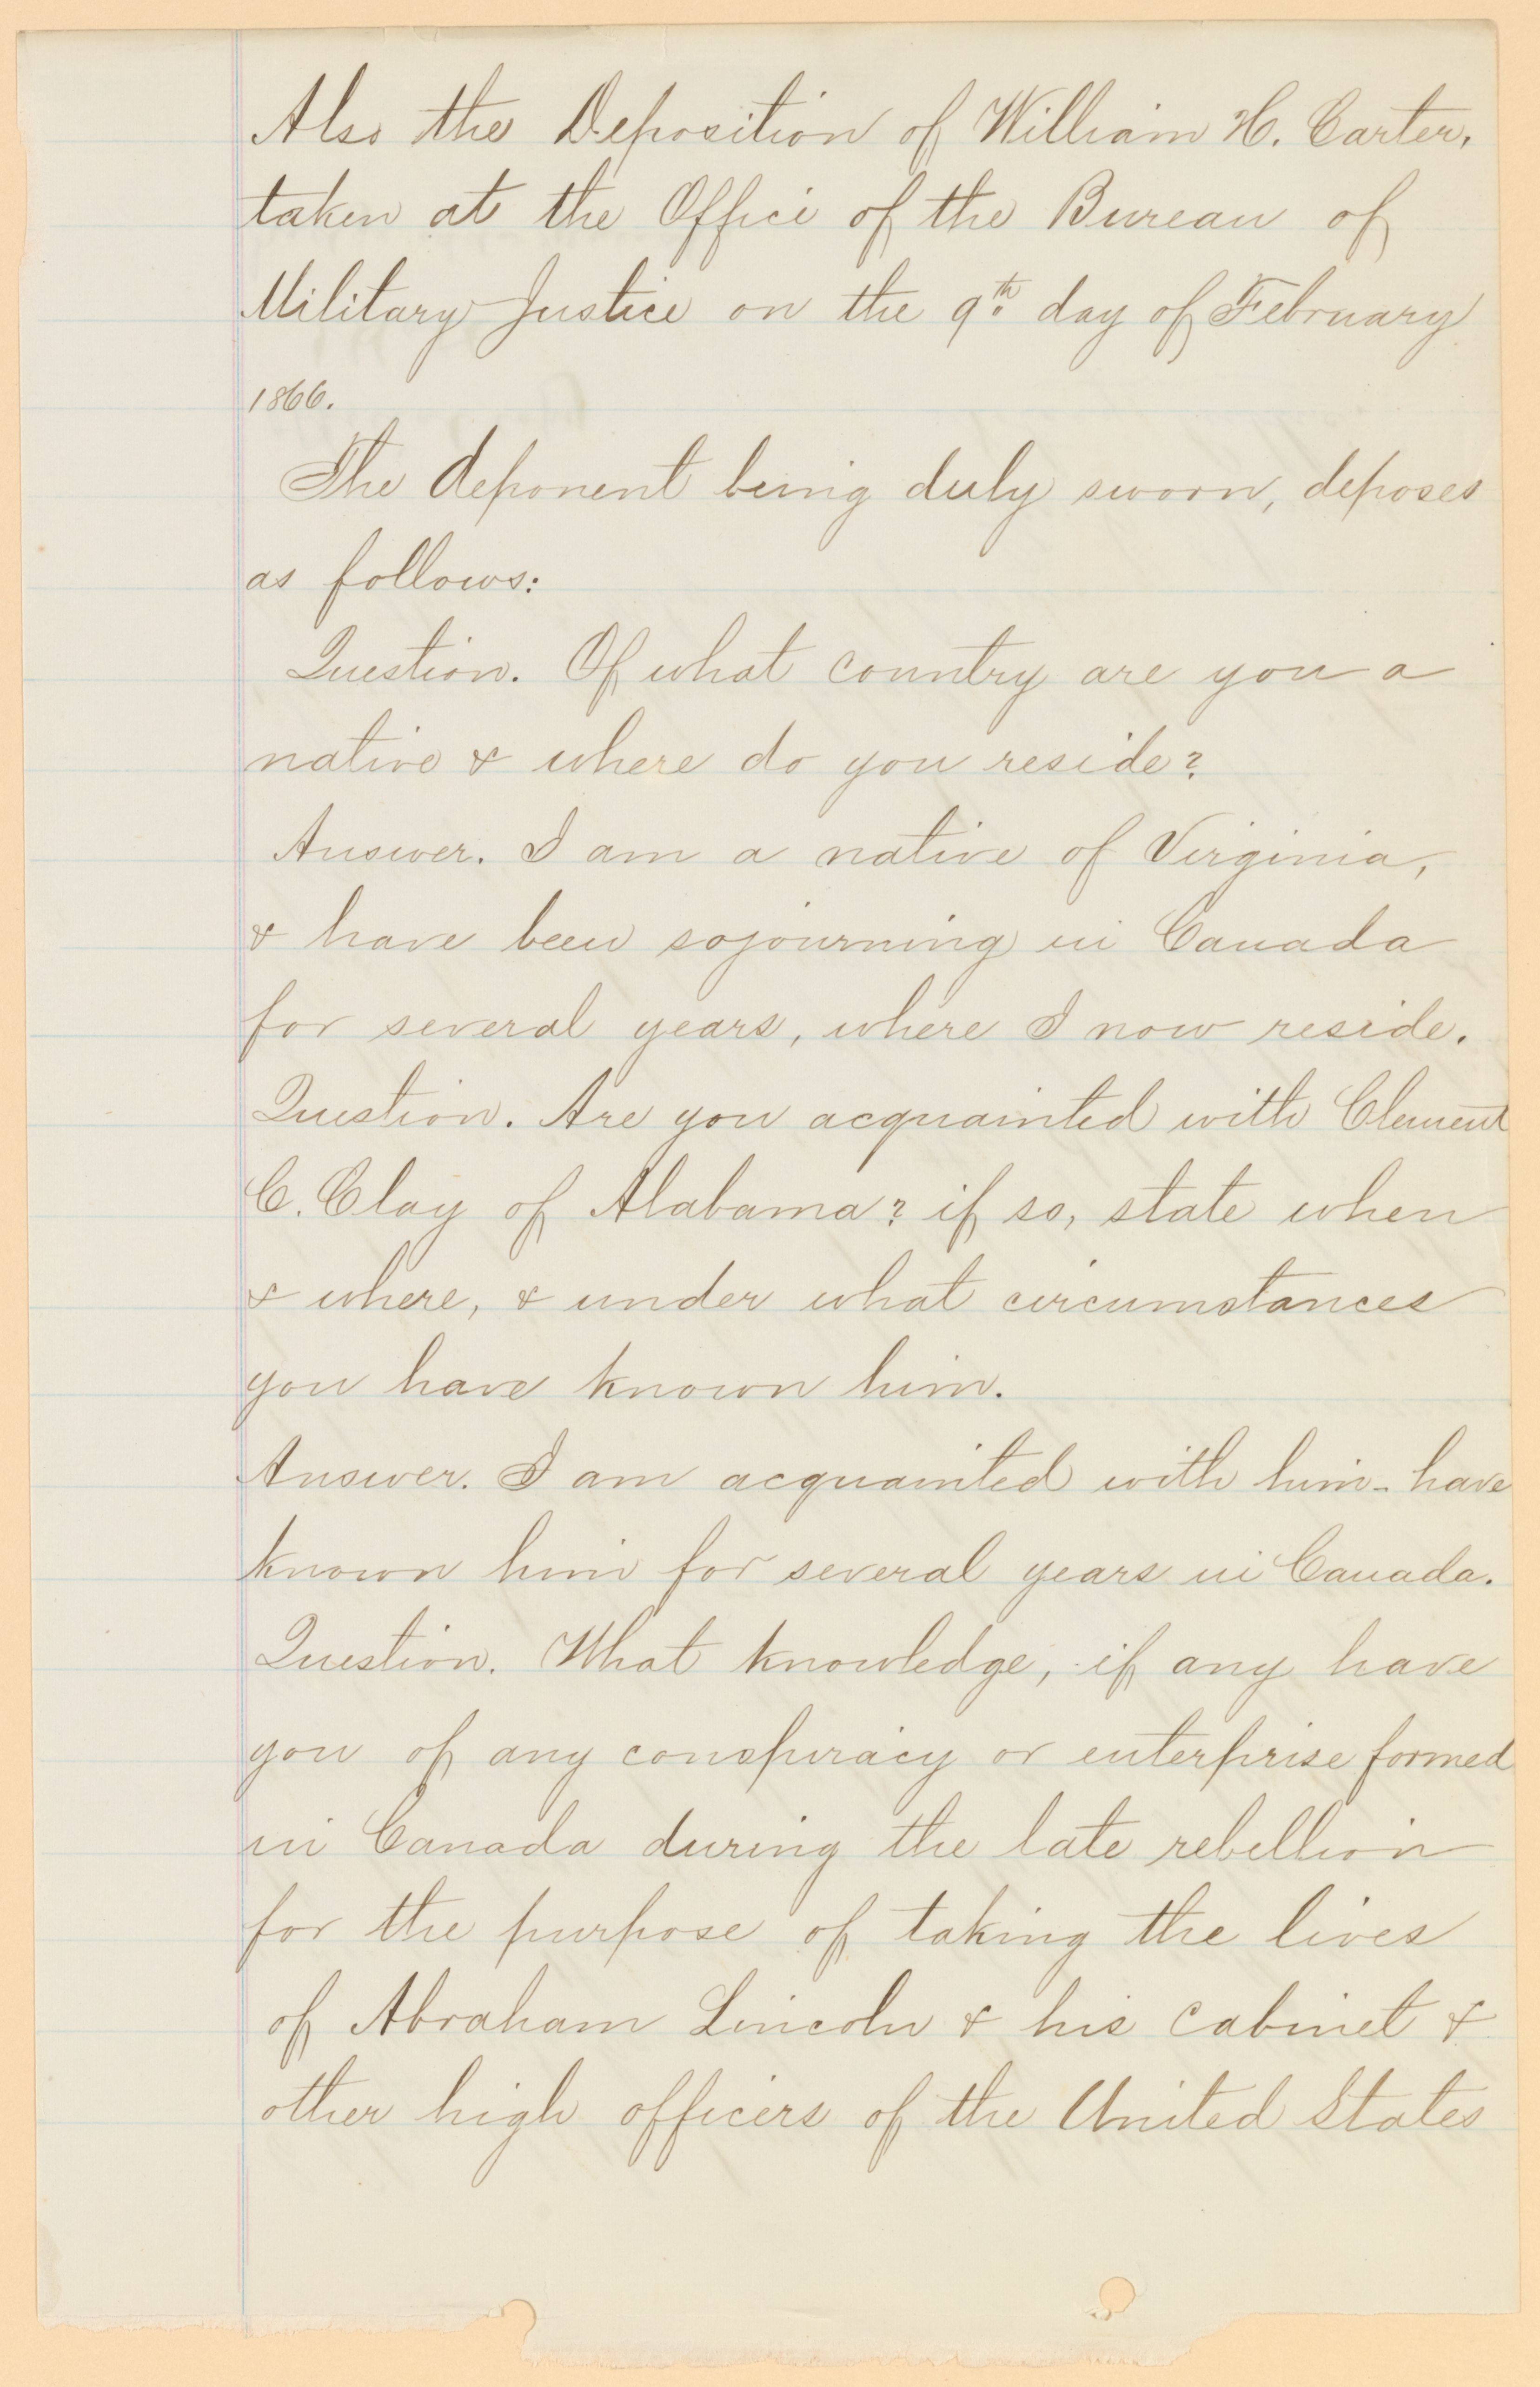 Also the Deposition of William H. Carter,
taken at the Office of the Bureau of
Military Justice on the 9th. day of February
1866.
The deponent being duly sworn, deposes
as follows:
Question. Of what country are you a
native & where do you reside?
Answer. I am a native of Virginia,
& have been sojourning in Canada
for several years, where I now reside.
Question. Are you acquainted with Clement
C. Clay of Alabama? if so, state when
& where, & under what circumstances
you have known him.
Answer. I am acquainted with him - have
known him for several years in Canada.
Question. What knowledge, if any have
you of any conspiracy or enterprise formed
in Canada during the late rebellion
for the purpose of taking the lives
of Abraham Lincoln & his cabinet &
other high officers of the United States